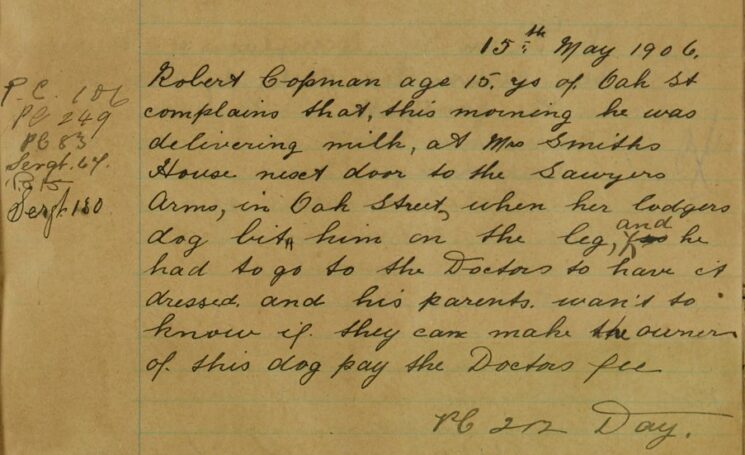 15th May 1906.
P.C. 106
PC 249
PC 83
Sergt. 64.
Sergt 180
Robert Copman age 15. ys of Oak St
complains that, this morning he was
delivering milk, at Mrs Smiths
House next door to the Sawyers
Arms, in Oak Street, when her lodgers
dog bit him on the leg, and he
had to go to the Doctors to have it
dressed. and his parents. wan't to
know if. they can make the owner
of. this dog pay the Doctors fee
PC 212 Day.